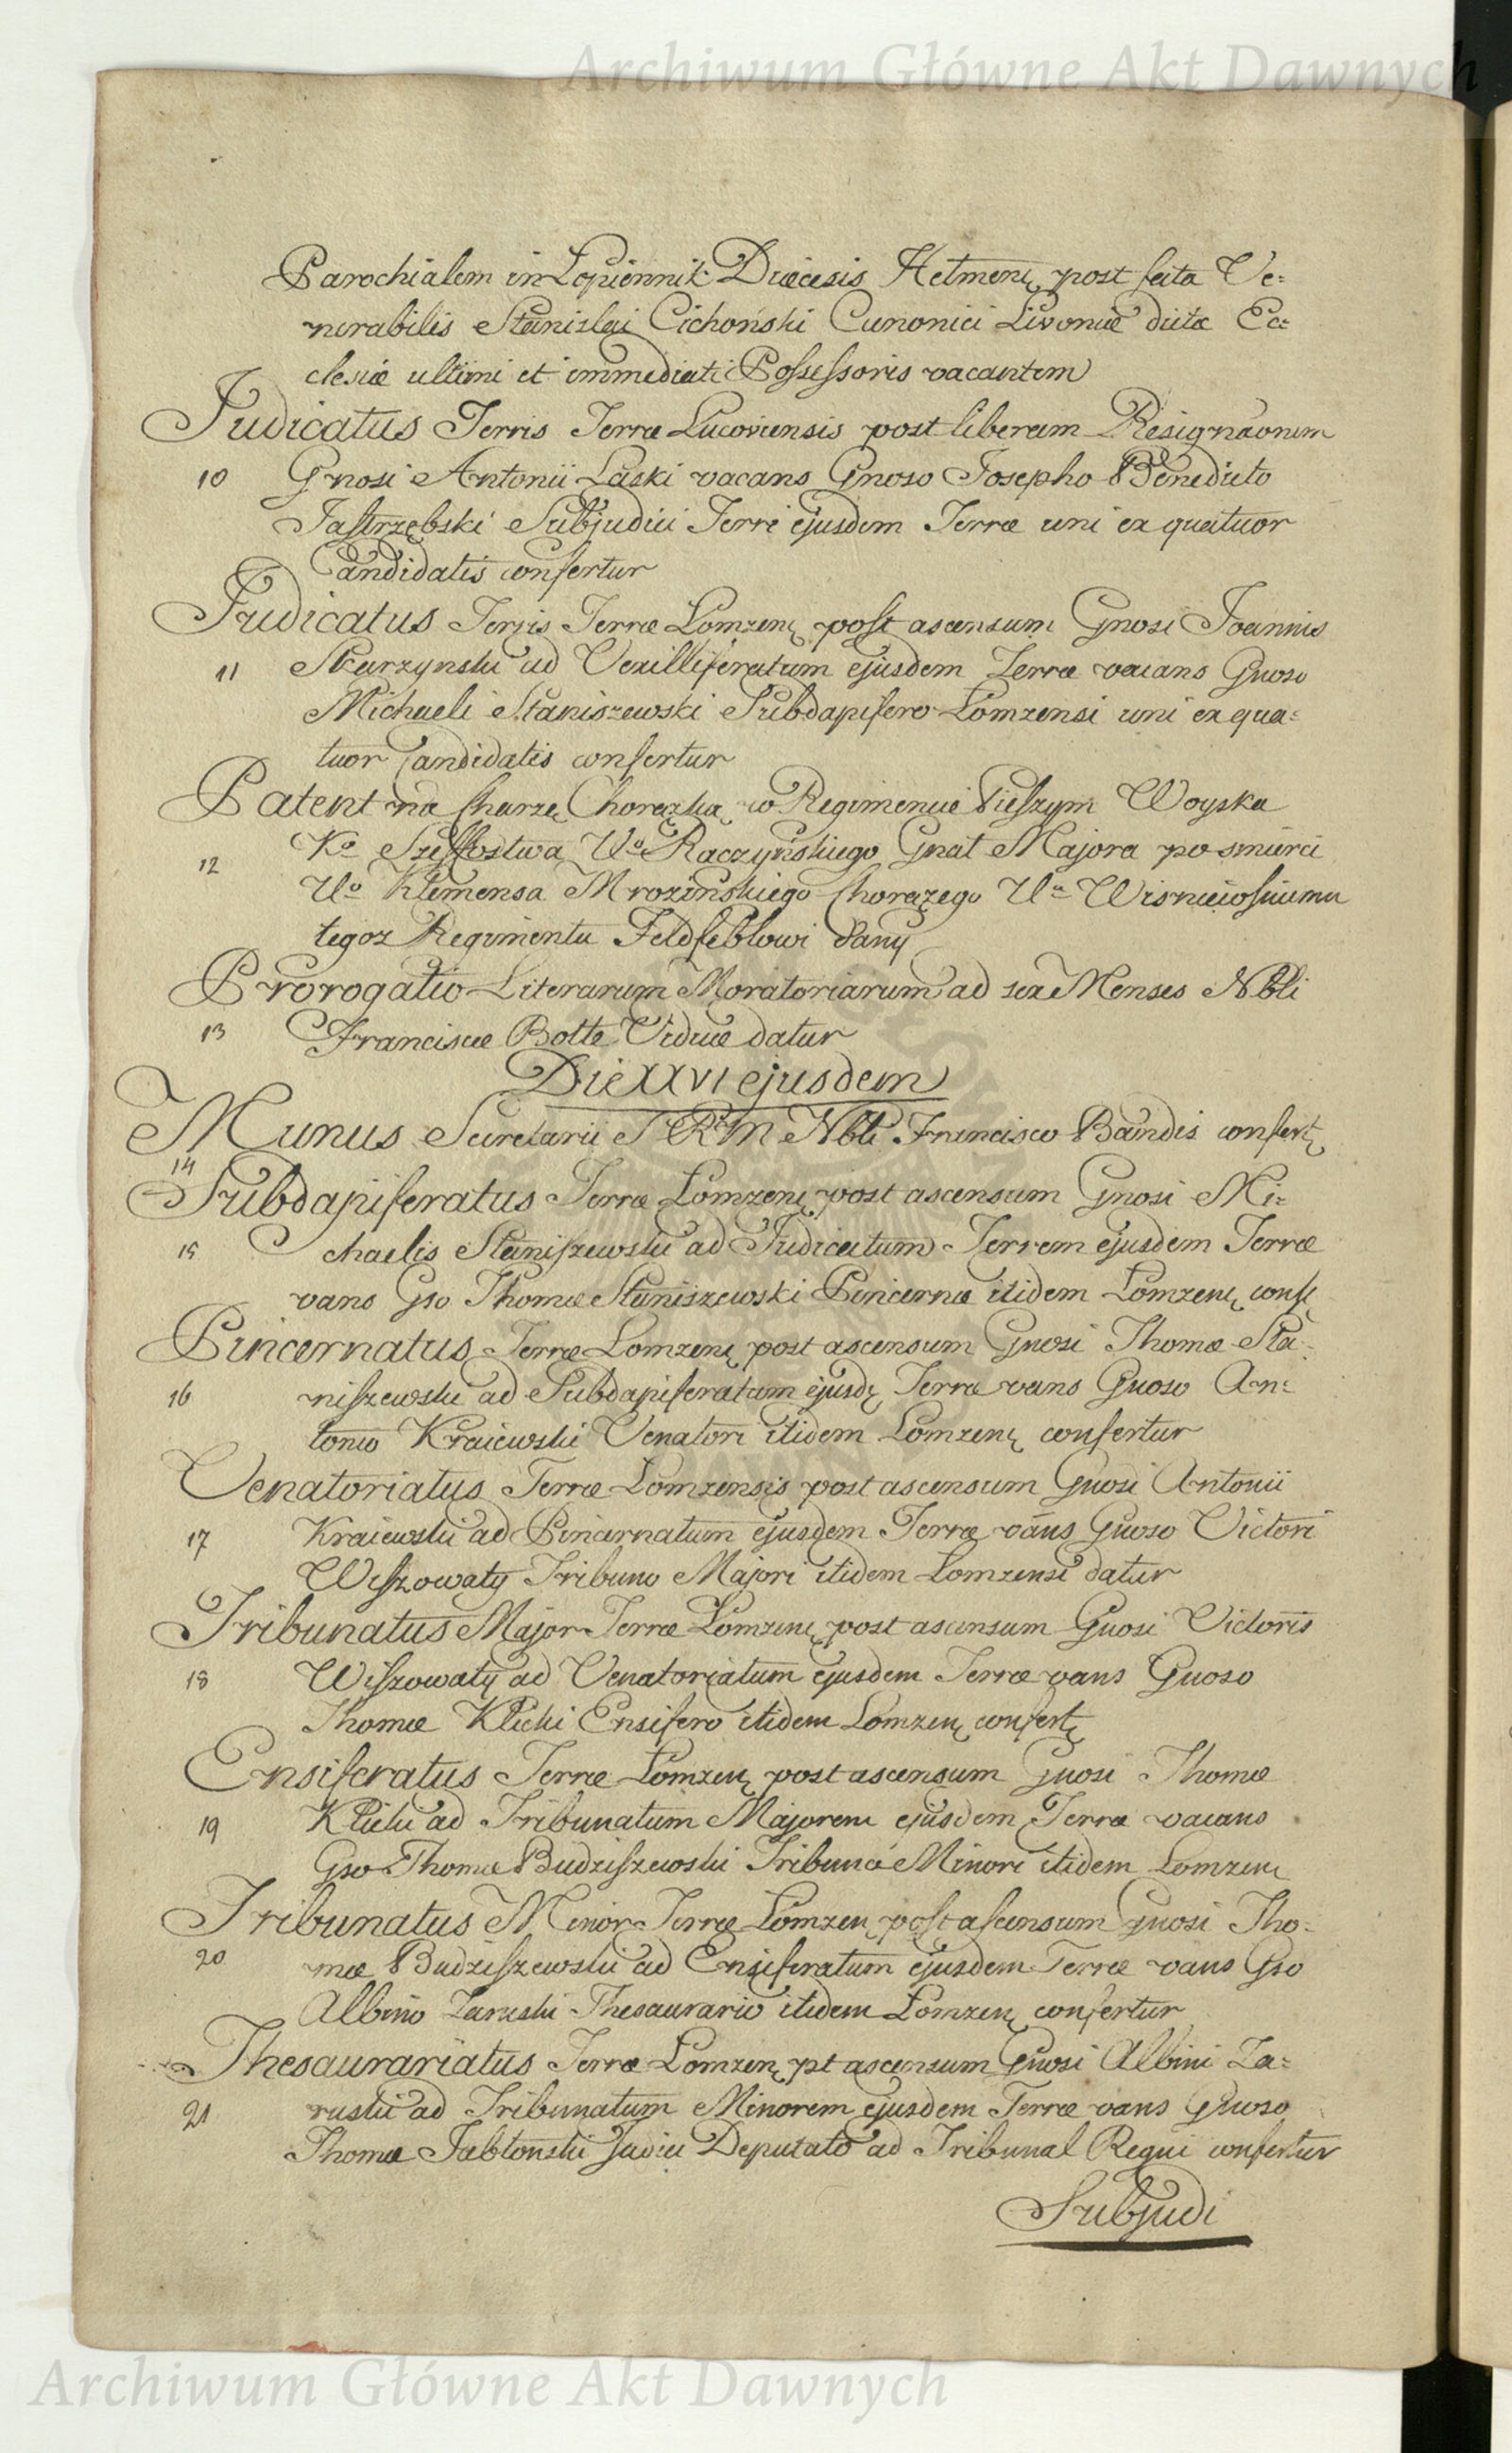 Archiwum Główne Akt Dawnych
Parochialem in Łopiennik Diæcesis Helmenę post fata Ve=
nerabilis Stanislai Cichoński Canonici Livoniæ dictæ Ec=
clesiæ ultimi et immediati Possessoris vacantem
Judicatus Terris Terræ Lucoviensis post liberam Resignaonem
10 Gnosi Antonii Laski vacans Gnoso Josepho Benedicto
Jastrzębski Subjudici Terri ejusdem Terræ uni ex quatuor
Candidatis confertur
Judicatus Terris Terræ Lomzenę post ascensum Gnosi Joannis
11 Skarzynski ad Vexilliferatum ejusdem Terræ vacans Gnoso
Michaeli Staniszewski Subdapifero Lomzensi uni ex qua=
tuor Candidatis confertur
Patent na Charzę Chorążką w Regimencie Pieszym Woyska
12 Ko Szeffostwa Uo Raczyńskiego Gnał Majora po śmierci
Uo Klemensa Mrozińskiego Chorążego Uu Wisniewskiemu
tegoż Regimentu Feldfeblowi dany
Prorogatio Literarum Moratoriarum ad sex Menses Nbli
13 Franciscæ Botte Viduæ datur
Die XXVI ejusdem
Munus Secretarii S R M Nbli Francisco Bandis confertę
14
Subdapiferatus Terræ Lomzenę post ascensum Gnosi Mi=
15 chaelis Staniszewski ad Judicatum Terrem ejusdem Terræ
vans Gso Thomæ Staniszewski Pincernæ itidem Lomzenę confę
Pincernatus Terræ Lomzenę post ascensum Gnosi Thomæ Sta=
16 niszewski ad Subdapiferatum ejusdę Terræ vans Gnoso An=
tonio Kraiewski Venatori itidem Lomzenę confertur
Venatoriatus Terræ Lomzensis post ascensum Gnosi Antonii
17 Kraiewski ad Pincernatum ejusdem Terræ vans Gnoso Victori
Wiszowaty Tribuno Majori itidem Lomzensi datur
Tribunatus Major Terræ Lomzenę post ascensum Gnosi Victoris
18 Wiszowaty ad Venatoriatum ejusdem Terræ vans Gnoso
Thomæ Klicki Ensifero itidem Lomzenę confertę
Ensiferatus Terræ Lomzenę post ascensum Gnosi Thomæ
19 Klicki ad Tribunatum Majorem ejusdem Terræ vacans
Gso Thomæ Budziszewski Tribuno Minori itidem Lomzenę
Tribunatus Minor Terræ Lomzenę post ascensum Gnosi Tho=
20 mæ Budziszewski ad Ensiferatum ejusdem Terræ vans Gso
Albino Zaruski Thesaurario itidem Lomzenę confertur
Thesaurariatus Terræ Lomzenę pt ascensum Gnosi Albini Za=
21 ruski ad Tribunatum Minorem ejusdem Terræ vans Gnoso
Thomæ Jabłonski Judici Deputato ad Tribunal Regni confertur
Subjudi
Archiwum Główne Akt Dawnych